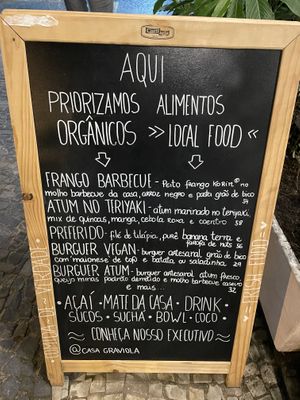 AQUI
PRIORIZAMOS ALIMENTOS
ORGÂNICOS >> LOCAL FOOD <<
FRANGO BARBECUE - Peito frango KORIN® no
molho barbecue da casa, arroz negro e pasta grão de bico
34
ATUM NO TIRIYAKI - atum marinado no teriyaki,
mix de quinoas, manga, cebola roxa e coentro 38
PREFERIDO - filé de tilápia, purê banana terra e
farofa de nuts 36
BURGUER VEGAN - burguer artesanal grão de bico
com maionese de tofu e batata ou saladinha. 29
BURGUER ATUM - burguer artesanal atum fresco
queijo minas padrão derretido e molho barbecue caseiro
e mais... 32
• AÇAÍ • MATE DA CASA • DRINK •
SUCOS • SUCHÁ • BOWL • COCO
~ CONHEÇA NOSSO EXECUTIVO ~
@CASA GRAVIOLA